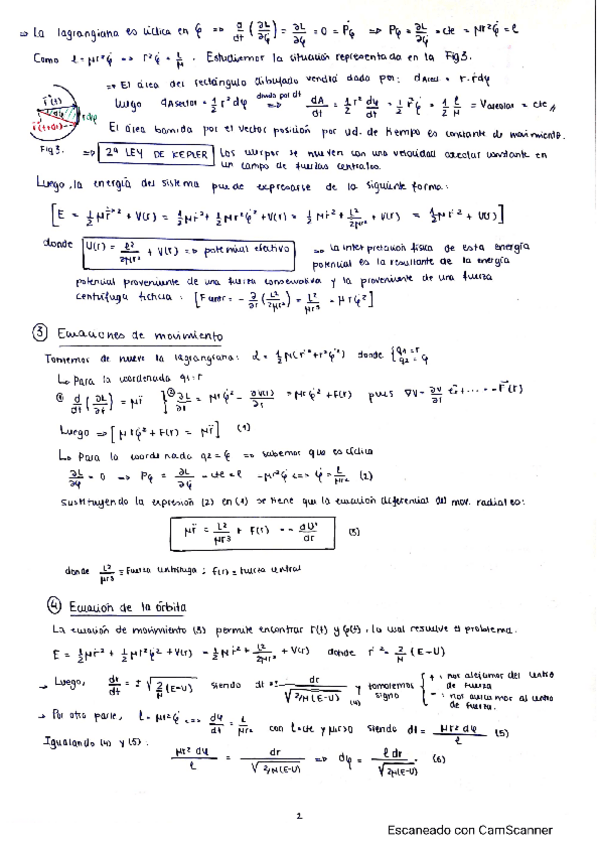 ⇒ La lagrangiana es cíclica en φ ⇒ d/dt (∂L/∂φ̇) = ∂L/∂φ = 0 = Ṗφ ⇒ Pφ = ∂L/∂φ̇ = cte = μr²φ̇ = l
Como l = μr²φ̇ ⇒ r²φ̇ = l/μ. Estudiemos la situación representada en la Fig 3.
⇒ El área del rectángulo dibujado vendrá dado por: dArea = r·rdφ
luego dAsector = 1/2 r² dφ ⇒ dA/dt = 1/2 r² dφ/dt = 1/2 r² φ̇ = 1/2 l/μ = Vareolar = cte
dividido por dt
r(t)
dφ
rdφ
r(t+dt)
El área barrida por el vector posición por ud. de tiempo es constante de movimiento.
Fig 3.
⇒ 2ª LEY DE KEPLER Los cuerpos se mueven con una velocidad areolar constante en
un campo de fuerzas centrales.
Luego, la energía del sistema puede expresarse de la siguiente forma:
[E = 1/2 μṙ² + V(r) = 1/2 μṙ² + 1/2 μr²φ̇² + V(r) = 1/2 μṙ² + l²/2μr² + V(r) = 1/2 μṙ² + U(r)]
donde U(r) = l²/2μr² + V(r) ⇒ potencial efectivo ⇒ La interpretación física de esta energía
potencial es la resultante de la energía
potencial proveniente de una fuerza conservativa y la proveniente de una fuerza
centrífuga ficticia: [F = - ∂/∂r (l²/2μr²) = l²/μr³ = μrφ̇²]
③ Ecuaciones de movimiento
Tomemos de nuevo la lagrangiana: L = 1/2 μ(ṙ² + r²φ̇²) donde { q1 = r
q2 = φ
↳ Para la coordenada q1 = r
① d/dt (∂L/∂ṙ) = μr̈ } ② ∂L/∂r = μrφ̇² - ∂V(r)/∂r = μrφ̇² + F(r) pues
Luego ⇒ [μrφ̇² + F(r) = μr̈] (1)
↳ Para la coordenada q2 = φ ⇒ sabemos que es cíclica
∂L/∂φ = 0 ⇒ Pφ = ∂L/∂φ̇ = cte = l = μr²φ̇ ⇔ φ̇ = l/μr² (2)
Sustituyendo la expresión (2) en (1) se tiene que la ecuación diferencial del mov. radial es:
μr̈ = l²/μr³ + F(r) = - dU/dr (3)
donde l²/μr³ = Fuerza centrífuga ; F(r) = fuerza central
④ Ecuación de la órbita
La ecuación de movimiento (3) permite encontrar r(t) y φ(t), lo cual resuelve el problema.
E = 1/2 μṙ² + 1/2 μr²φ̇² + V(r) = 1/2 μṙ² + l²/2μr² + V(r) donde ṙ² = 2/μ (E-U)
→ Luego, dr/dt = ± √(2/μ (E-U)) siendo dt = ± dr/√(2/μ(E-U)) (4) y tomaremos signo { + : nos alejamos del centro
de fuerza
- : nos acercamos al centro
de fuerza.
→ Por otro parte, l = μr²φ̇ ⇔ dφ/dt = l/μr² con l = cte y μr>0 siendo dt = μr² dφ/l (5)
Igualando (4) y (5):
μr² dφ/l = dr/√(2/μ(E-U)) ⇒ dφ = l dr/√(2μ(E-U)) (6)
2
Escaneado con CamScanner